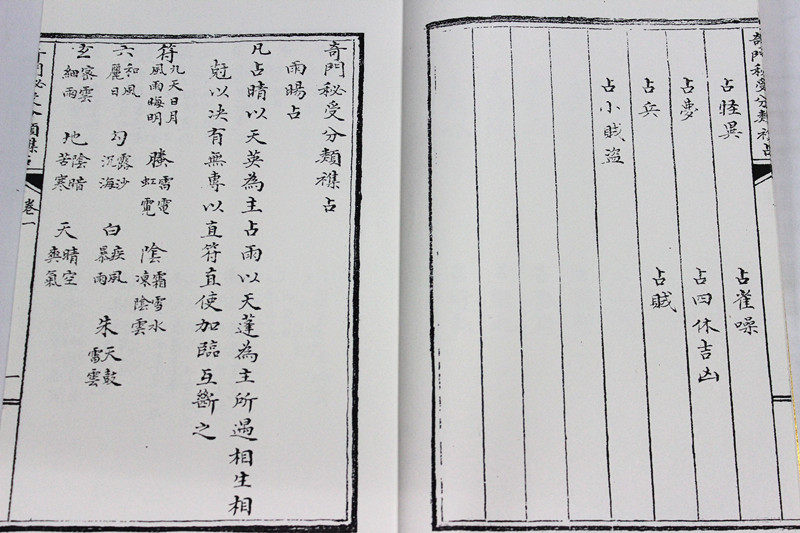 奇門秘受分類襍占
占怪異 占雀噪
占夢 占四休吉凶
占兵 占賊
占小賊盗
奇門秘受分類襍占
雨暘占
凡占晴以天英為主占雨以天蓬為主所遇相生相
尅以决有無專以直符直使加臨互斷之
符 九天日月 風雨晦明 螣 雷電 虹霓 陰 霜雪水 凍陰雲
六 和風 麗日 勾 霧沙 沉海 白 疾風 暴雨 朱 天鼓 雷雲
玄 密雲 細雨 地 陰暗 苦寒 天 晴空 爽氣
奇門秘受分類襍占 卷一 一